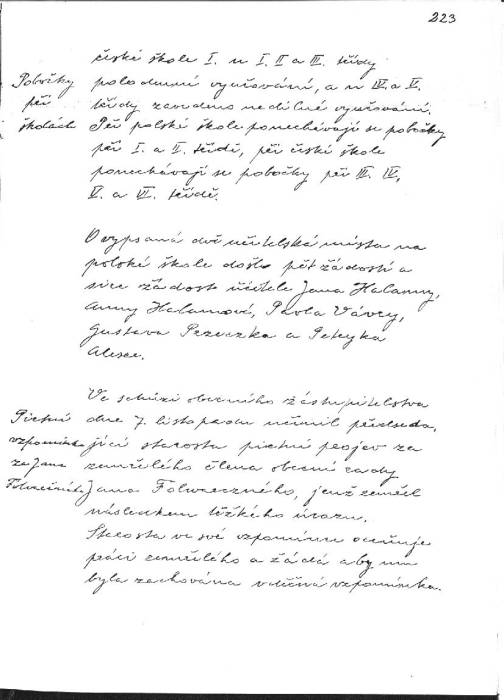 223
české škole I. u I, II a III. třídy
Pobočky polodenní vyučování, a u IV. a V.
při třídy zavedeno nedílné vyučování.
školách Při polské škole ponechávají se pobočky
při I. a II. třídě, při české škole
ponechávají se pobočky při III. IV,
V. a VI. třídě.
O vypsaná dvě učitelská místa na
polské škole došlo pět žádostí a
sice žádost učitele Jana Halamy,
Anny Halamové, Pavla Vávry,
Gustava Przeczka a Petryka
Ve schůzi obecního zastupitelstva
Pietní dne 7. listopadu učinil předseda,
vzpomínka jící starosta pietní projev za
za Jana zemřelého člena obecní rady
Jana Folwarczného, jenž zemřel
následkem těžkého úrazu.
Starosta ve své vzpomínce oceňuje
práci zemřelého a žádá aby mu
byla zachována vděčná vzpomínka.